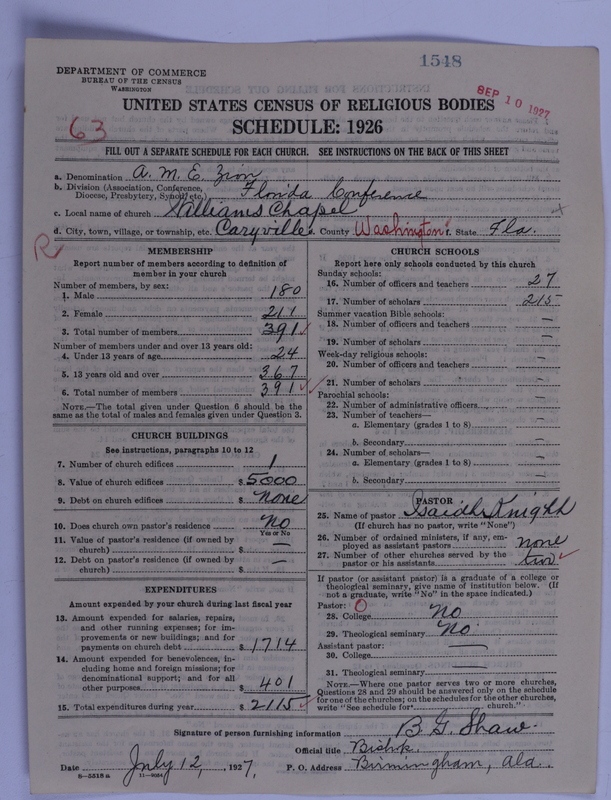 1548
DEPARTMENT OF COMMERCE
BUREAU OF THE CENSUS
WASHINGTON
SEP 10 1927
UNITED STATES CENSUS OF RELIGIOUS BODIES
63
SCHEDULE: 1926
FILL OUT A SEPARATE SCHEDULE FOR EACH CHURCH. SEE INSTRUCTIONS ON THE BACK OF THIS SHEET
a. Denomination A. M. E. Zion
b. Division (Association, Conference, Diocese, Presbytery, Synod, etc.) Florida Conference
c. Local name of church Williams Chapel
d. City, town, village, or township, etc. Caryville e. County Washington f. State Fla.
R
MEMBERSHIP
Report number of members according to definition of member in your church
Number of members, by sex:
1. Male 180
2. Female 211
3. Total number of members 391
Number of members under and over 13 years old:
4. Under 13 years of age 24
5. 13 years old and over 367
6. Total number of members 391
NOTE.—The total given under Question 6 should be the same as the total of males and females given under Question 3.
CHURCH BUILDINGS
See instructions, paragraphs 10 to 12
7. Number of church edifices 1
8. Value of church edifices $ 5000
9. Debt on church edifices $ None
10. Does church own pastor's residence No
Yes or No
11. Value of pastor's residence (if owned by church) $ —
12. Debt on pastor's residence (if owned by church) $ —
EXPENDITURES
Amount expended by your church during last fiscal year
13. Amount expended for salaries, repairs, and other running expenses; for improvements or new buildings; and for payments on church debt $ 1714
14. Amount expended for benevolences, including home and foreign missions; for denominational support; and for all other purposes $ 401
15. Total expenditures during year $ 2115
CHURCH SCHOOLS
Report here only schools conducted by this church
Sunday schools:
16. Number of officers and teachers 27
17. Number of scholars 215
Summer vacation Bible schools:
18. Number of officers and teachers —
19. Number of scholars —
Week-day religious schools:
20. Number of officers and teachers —
21. Number of scholars —
Parochial schools:
22. Number of administrative officers —
23. Number of teachers—
a. Elementary (grades 1 to 8) —
b. Secondary —
24. Number of scholars—
a. Elementary (grades 1 to 8) —
b. Secondary —
PASTOR
25. Name of pastor Isaiah Knight
(If church has no pastor, write "None")
26. Number of ordained ministers, if any, employed as assistant pastors none
27. Number of other churches served by the pastor or his assistants two
If pastor (or assistant pastor) is a graduate of a college or theological seminary, give name of institution below. (If not a graduate, write "No" in the space indicated.)
Pastor: O
28. College No
29. Theological seminary No
Assistant pastor:
30. College —
31. Theological seminary —
NOTE.—Where one pastor serves two or more churches, Questions 28 and 29 should be answered only on the schedule for one of the churches; on the schedules for the other churches, write "See schedule for church."
Signature of person furnishing information B. G. Shaw
Official title Bishop
Date July 12, 1927, P. O. Address Birmingham, Ala.
8-5518a 11-9034